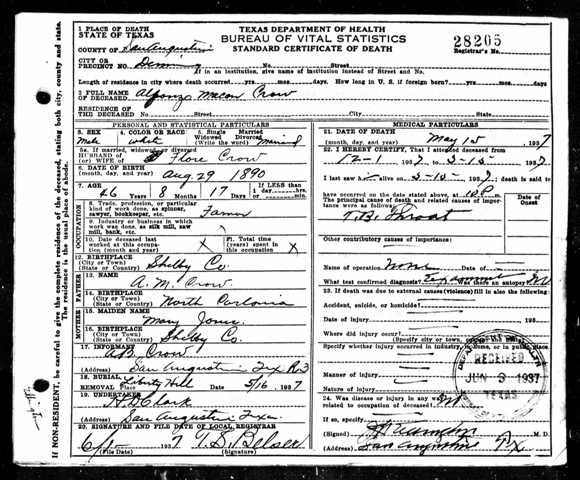 TEXAS DEPARTMENT OF HEALTH
BUREAU OF VITAL STATISTICS
STANDARD CERTIFICATE OF DEATH
28205
Registrar's No.
1 PLACE OF DEATH
STATE OF TEXAS
COUNTY OF San Augustine
CITY OR
PRECINCT NO. Denning No. Street
If in an institution, give name of institution instead of Street and No.
Length of residence in city where death occurred yrs. mos. days How long in U. S. if foreign born? yrs. mos. days
2 FULL NAME OF DECEASED Alfonzo Macon Crow
RESIDENCE OF THE DECEASED No. Street City State
PERSONAL AND STATISTICAL PARTICULARS
3. SEX Male
4. COLOR OR RACE white
5. Single Married Widowed Divorced (Write the word) Married
5a. If married, widowed or divorced
HUSBAND OF (or) WIFE OF Flore Crow
6. DATE OF BIRTH (month, day, and year) Aug 29 1890
7. AGE 46 Years 8 Months 17 Days If LESS than 1 day, hours min.
OCCUPATION
8. Trade, profession, or particular kind of work done, as spinner, sawyer, bookkeeper, etc. Farmer
9. Industry or business in which work was done, as silk mill, saw mill, bank, etc.
10. Date deceased last worked at this occupation (month and year) X
11. Total time (years) spent in this occupation X
12. BIRTHPLACE (City or Town) (State or Country) Shelby Co.
FATHER
13. NAME A. M. Crow
14. BIRTHPLACE (City or Town) (State or Country) North Carlonia
MOTHER
15. MAIDEN NAME Mary Jones
16. BIRTHPLACE (City or Town) (State or Country) Shelby Co.
17. INFORMANT AB Crow
(Address) San Augustine Tex R3
18. BURIAL, REMOVAL Place Liberty Hill Date 5/16 1937
19. UNDERTAKER H. D. Clark
(Address) San Augustine Tex.
20. SIGNATURE AND FILE DATE OF LOCAL REGISTRAR
6/1 1937 T. S. Belser
(File Date) (signature)
MEDICAL PARTICULARS
21. DATE OF DEATH (month, day, and year) May 15, 1937
22. I HEREBY CERTIFY, That I attended deceased from
12-1 1937 to 5-15- 1937
I last saw h alive on 5-15- 1937; death is said to
have occurred on the date stated above, at 10 P m.
The principal cause of death and related causes of importance were as follows: Date of Onset
T. B. Throat
Other contributory causes of importance:
Name of operation none Date of
What test confirmed diagnosis? Was there an autopsy? No
23. If death was due to external causes (Violence) fill in also the following:
Accident, suicide, or homicide?
Date of injury 193
Where did injury occur?
(Specify city or town, county and state)
Specify whether injury occurred in industry, in home, or in public place.
Manner of injury
Nature of injury
24. Was disease or injury in any way related to occupation of deceased?
If so, specify
(Signed) M. D.
(Address) San Augustine Tx
RECEIVED
JUN 9 1937
TEXAS
If NON-RESIDENT, be careful to give the complete residence of the deceased, stating both city, county and state.
The residence is the usual place of abode.